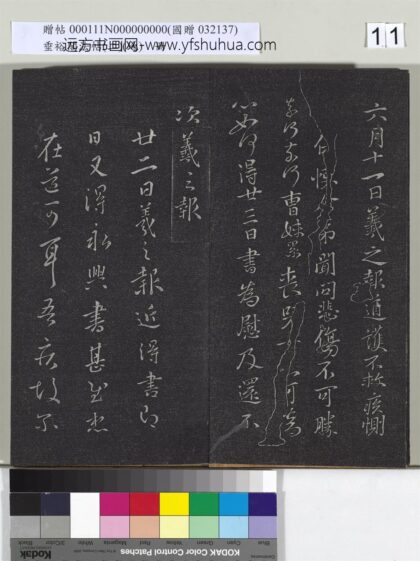 贈帖 000111N000000000(國贈 032137)
远方书画网-www.yfshuhua.com
11
六月十一日羲之報道護不救疾惻
怛悼外弟聞問悲傷不可勝
奈何奈何曹妹累喪 不可為
心如何得廿三日書為慰及還不
次羲之報
廿二日羲之報近得書即
日又得永興書甚慰想
在道可耳吾疾故爾
KODAK Color Control Patches
Blue
Cyan
Green
Yellow
Red
Magenta
White
3/Color
Black